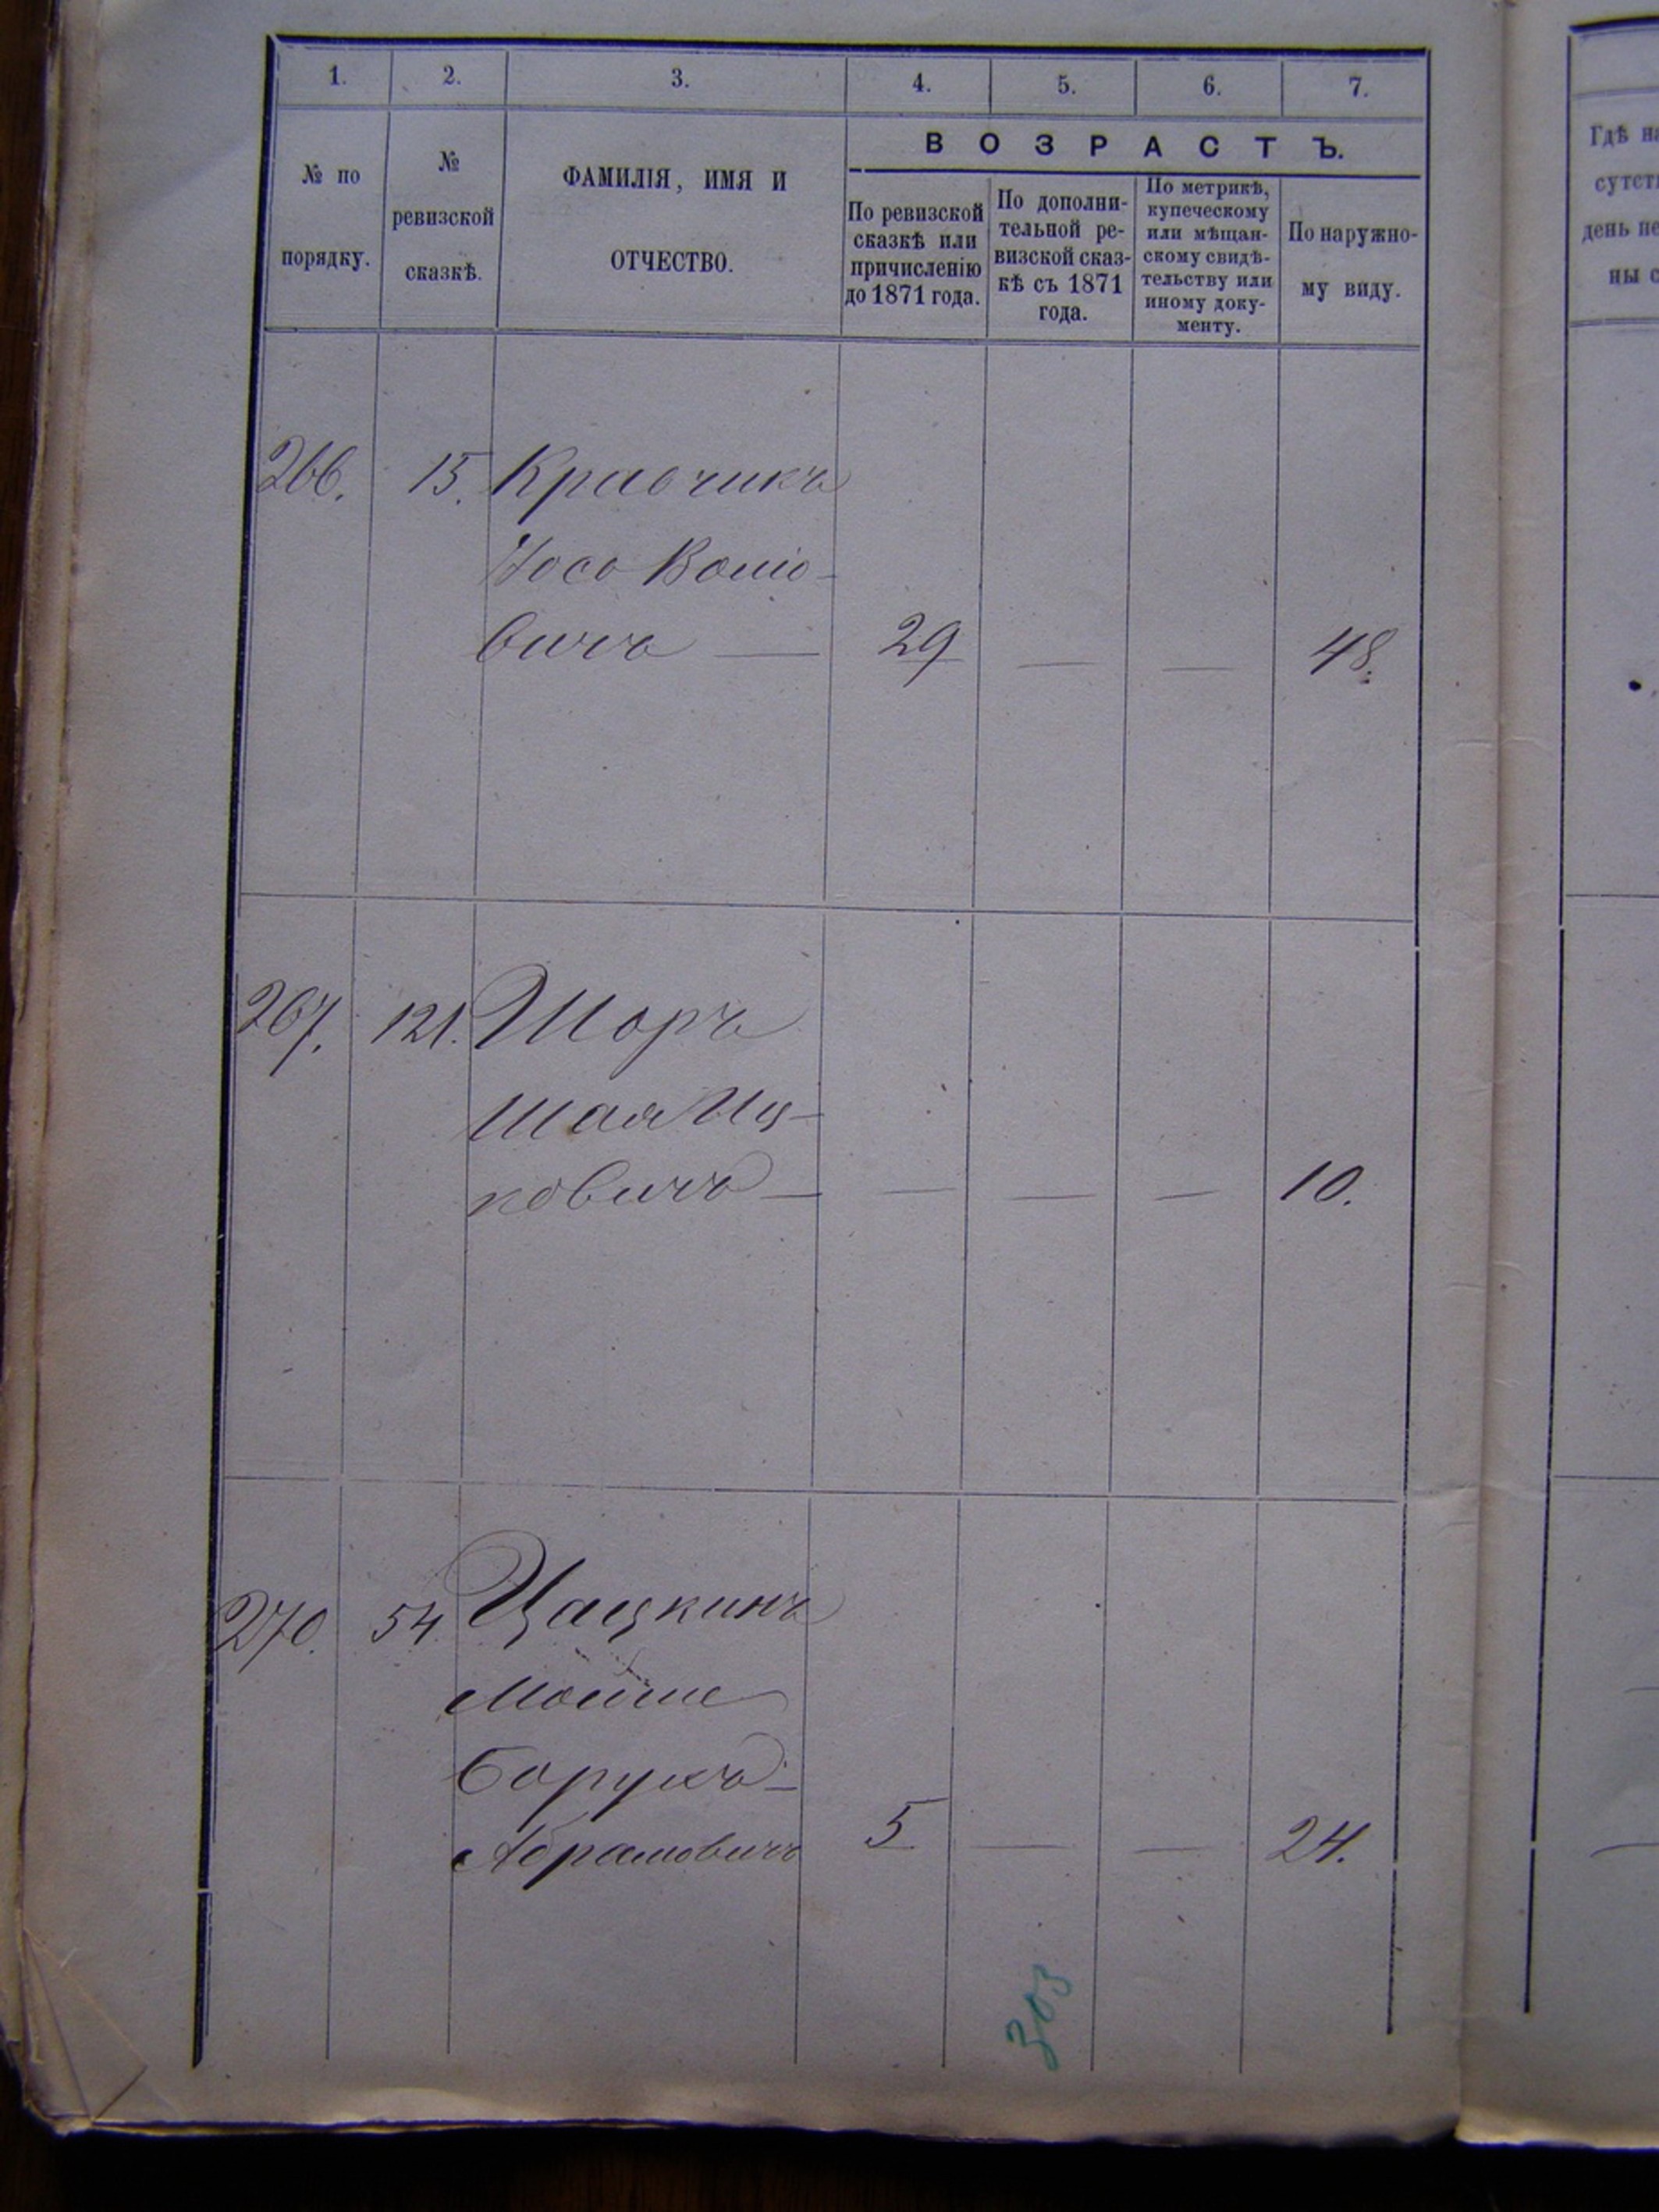 1. 2. 3. 4. 5. 6. 7.
№ по
порядку.
№
ревизской
сказкѣ.
ФАМИЛІЯ, ИМЯ И
ОТЧЕСТВО.
ВОЗРАСТЪ.
По ревизской
сказкѣ или
причисленію
до 1871 года.
По дополни-
тельной ре-
визской сказ-
кѣ съ 1871
года.
По метрикѣ,
купеческому
или мѣщан-
скому свидѣ-
тельству или
иному доку-
менту.
По наружно-
му виду.
266. 15. Кравчикъ
Іосо
вичъ — 29 — — 48.
267. 121. Шоръ
Шая Иц-
ковичъ — — — — 10.
270. 54 Цацкинъ
Мойше
Борухъ-
Абрамовичъ 5 — — 24.
303
Гдѣ на
сутст
день пе
ны с